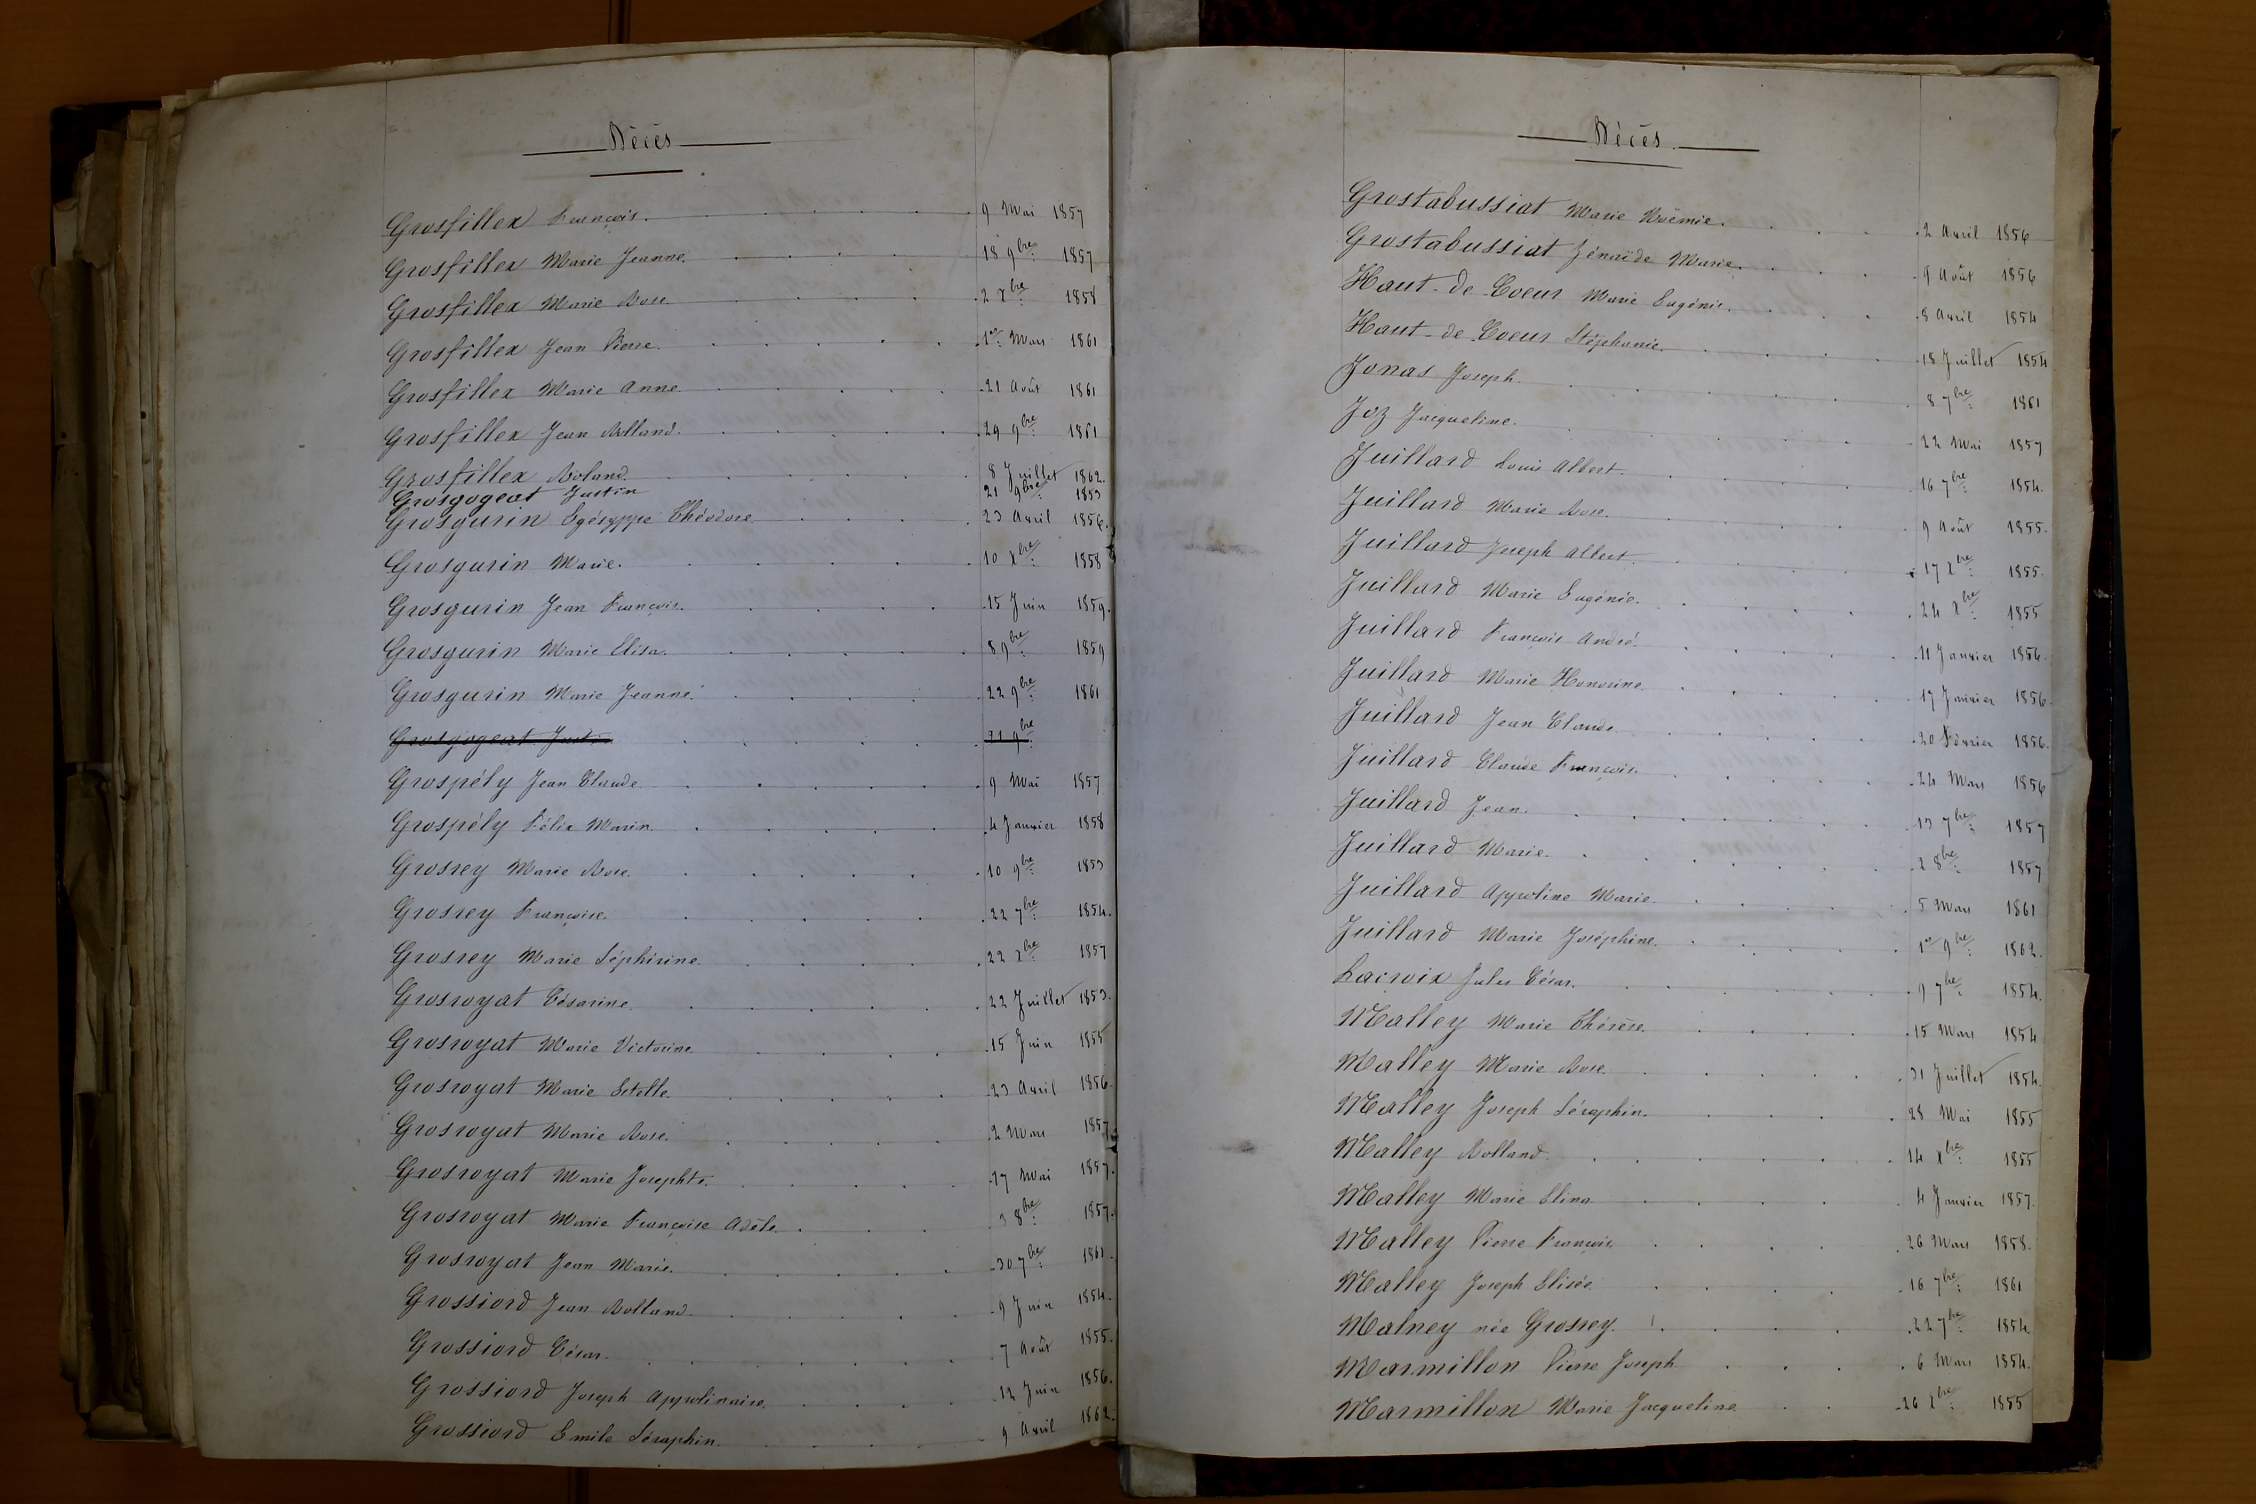 Décès
Grosfillex François. 9 Mai 1857
Grosfillex Marie Jeanne. 18 9bre 1857
Grosfillex Marie Rose 2 Xbre 1858
Grosfillex Jean Pierre. 1er Mars 1861
Grosfillex Marie Anne 21 Août 1861
Grosfillex Jean Rolland. 29 9bre 1861
Grosfillex Roland. 8 Juillet 1862.
Grosgogeat Justin 21 9bre 1853
Grosgurin Egésyppe Théodore 23 Avril 1856.
Grosgurin Marie. 10 Xbre 1858
Grosgurin Jean François. 15 Juin 1859.
Grosgurin Marie Elisa. 8 9bre 1859
Grosgurin Marie Jeanne. 22 9bre 1861
Grosgogeat Justin 21 9bre
Grospély Jean Claude 9 Mai 1857
Grospély Félix Marin. 4 Janvier 1858
Grosrey Marie Rose. 10 9bre 1853
Grosrey Françoise. 22 7bre 1854.
Grosrey Marie Séphirine. 22 Xbre 1857
Grosroyat Césarine. 22 Juillet 1853.
Grosroyat Marie Victorine 15 Juin 1855
Grosroyat Marie Estelle. 23 Avril 1856.
Grosroyat Marie Rose. 2 Mars 1857.
Grosroyat Marie Josephte. 17 Mai 1857.
Grosroyat Marie Françoise Adèle. 3 8bre 1857.
Grosroyat Jean Marie. 30 7bre 1861.
Grossiord Jean Rolland 9 Juin 1854.
Grossiord César. 7 Août 1855.
Grossiord Joseph Appolinaire. 12 Juin 1856.
Grossiord Emile Séraphin. 9 Avril 1862.
Décès.
Grostabussiat Marie Noëmie. 2 Avril 1856
Grostabussiat Zénaïde Marie. 9 Août 1856
Haut-de-Coeur Marie Eugénie. 8 Avril 1854
Haut-de-Coeur Stéphanie. 18 Juillet 1854
Jonas Joseph. 8 7bre 1861
Joz Jacqueline. 22 Mai 1857
Juillard Louis Albert. 16 7bre 1854.
Juillard Marie Rose. 9 Août 1855.
Juillard Joseph Albert. 17 Xbre 1855.
Juillard Marie Eugénie. 24 Xbre 1855
Juillard François André. 11 Janvier 1856.
Juillard Marie Honorine. 17 Janvier 1856.
Juillard Jean Claude. 20 Février 1856.
Juillard Claude François. 24 Mars 1856
Juillard Jean. 13 7bre 1857
Juillard Marie. 2 8bre 1857
Juillard Appoline Marie. 5 Mars 1861
Juillard Marie Joséphine. 1er 9bre 1862.
Lacroix Jules César. 9 7bre 1854.
Malley Marie Thérèse. 15 Mars 1854
Malley Marie Rose. 31 Juillet 1854.
Malley Joseph Séraphin. 28 Mai 1855
Malley Rolland. 14 Xbre 1855
Malley Marie Elina 4 Janvier 1857.
Malley Pierre François. 26 Mars 1858.
Malley Joseph Elisée. 16 7bre 1861
Malney née Grosrey. 22 7bre 1854.
Marmillon Pierre Joseph 6 Mars 1854.
Marmillon Marie Jacqueline 26 Xbre 1855